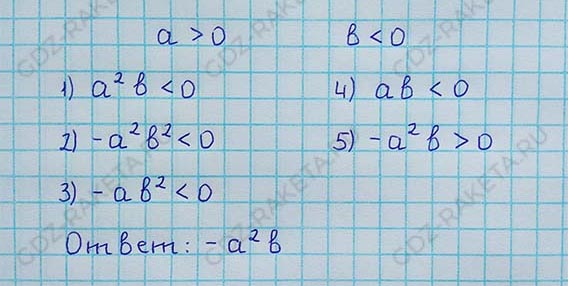 a > 0 в < 0
1) a² в < 0 4) aв < 0
2) -a² в² < 0 5) -a² в > 0
3) -a в² < 0
Ответ: -a² в
GDZ-RAKETA.RU